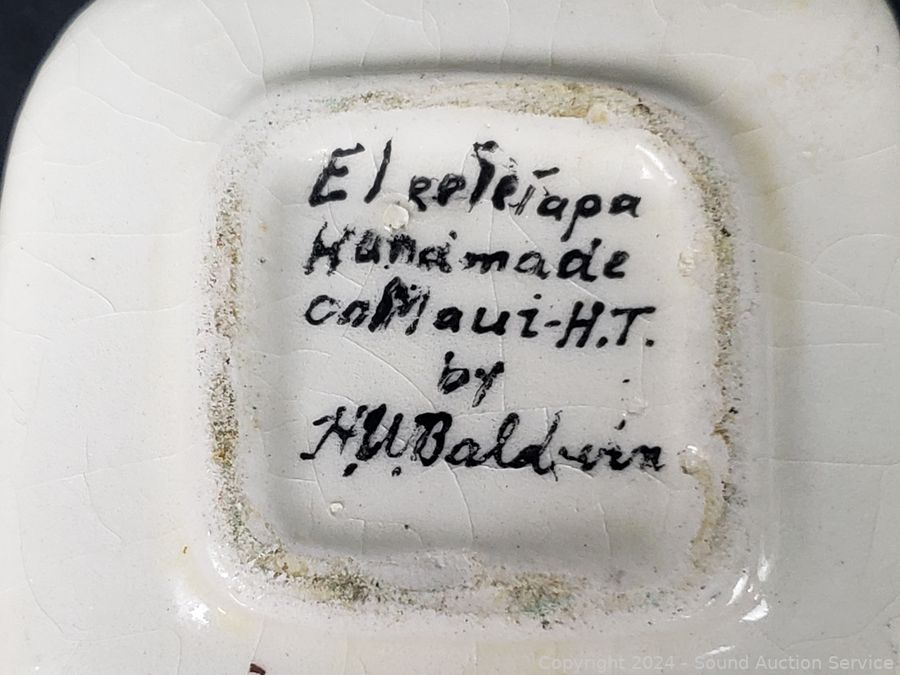 Handmade
on Maui-H.T.
by
H.U. Baldwin
Copyright 2024 - Sound Auction Service